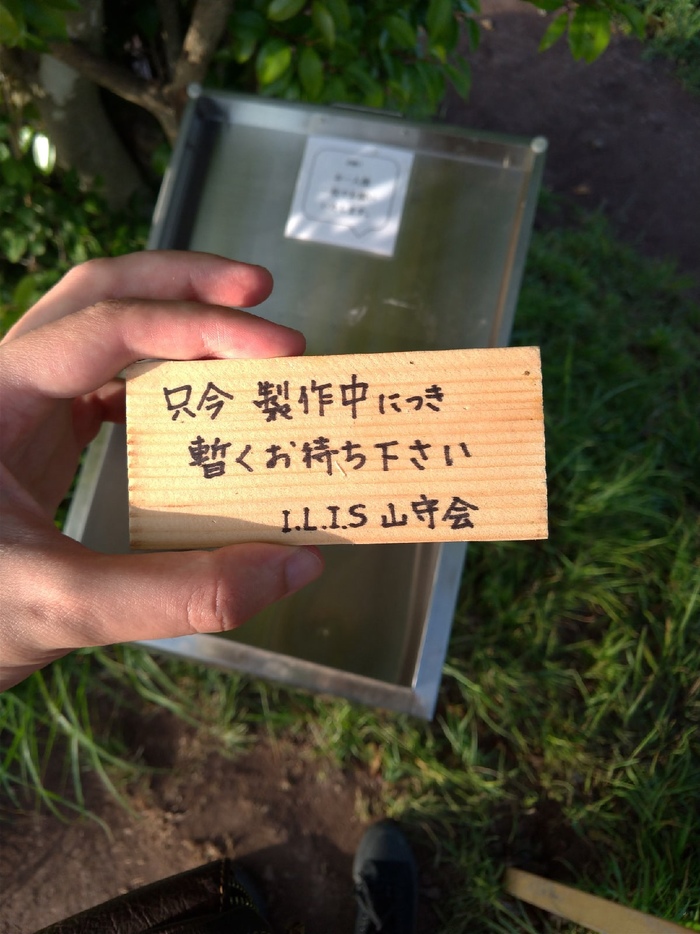 只今 製作中につき
暫くお待ち下さい
I.L.I.S 山守会